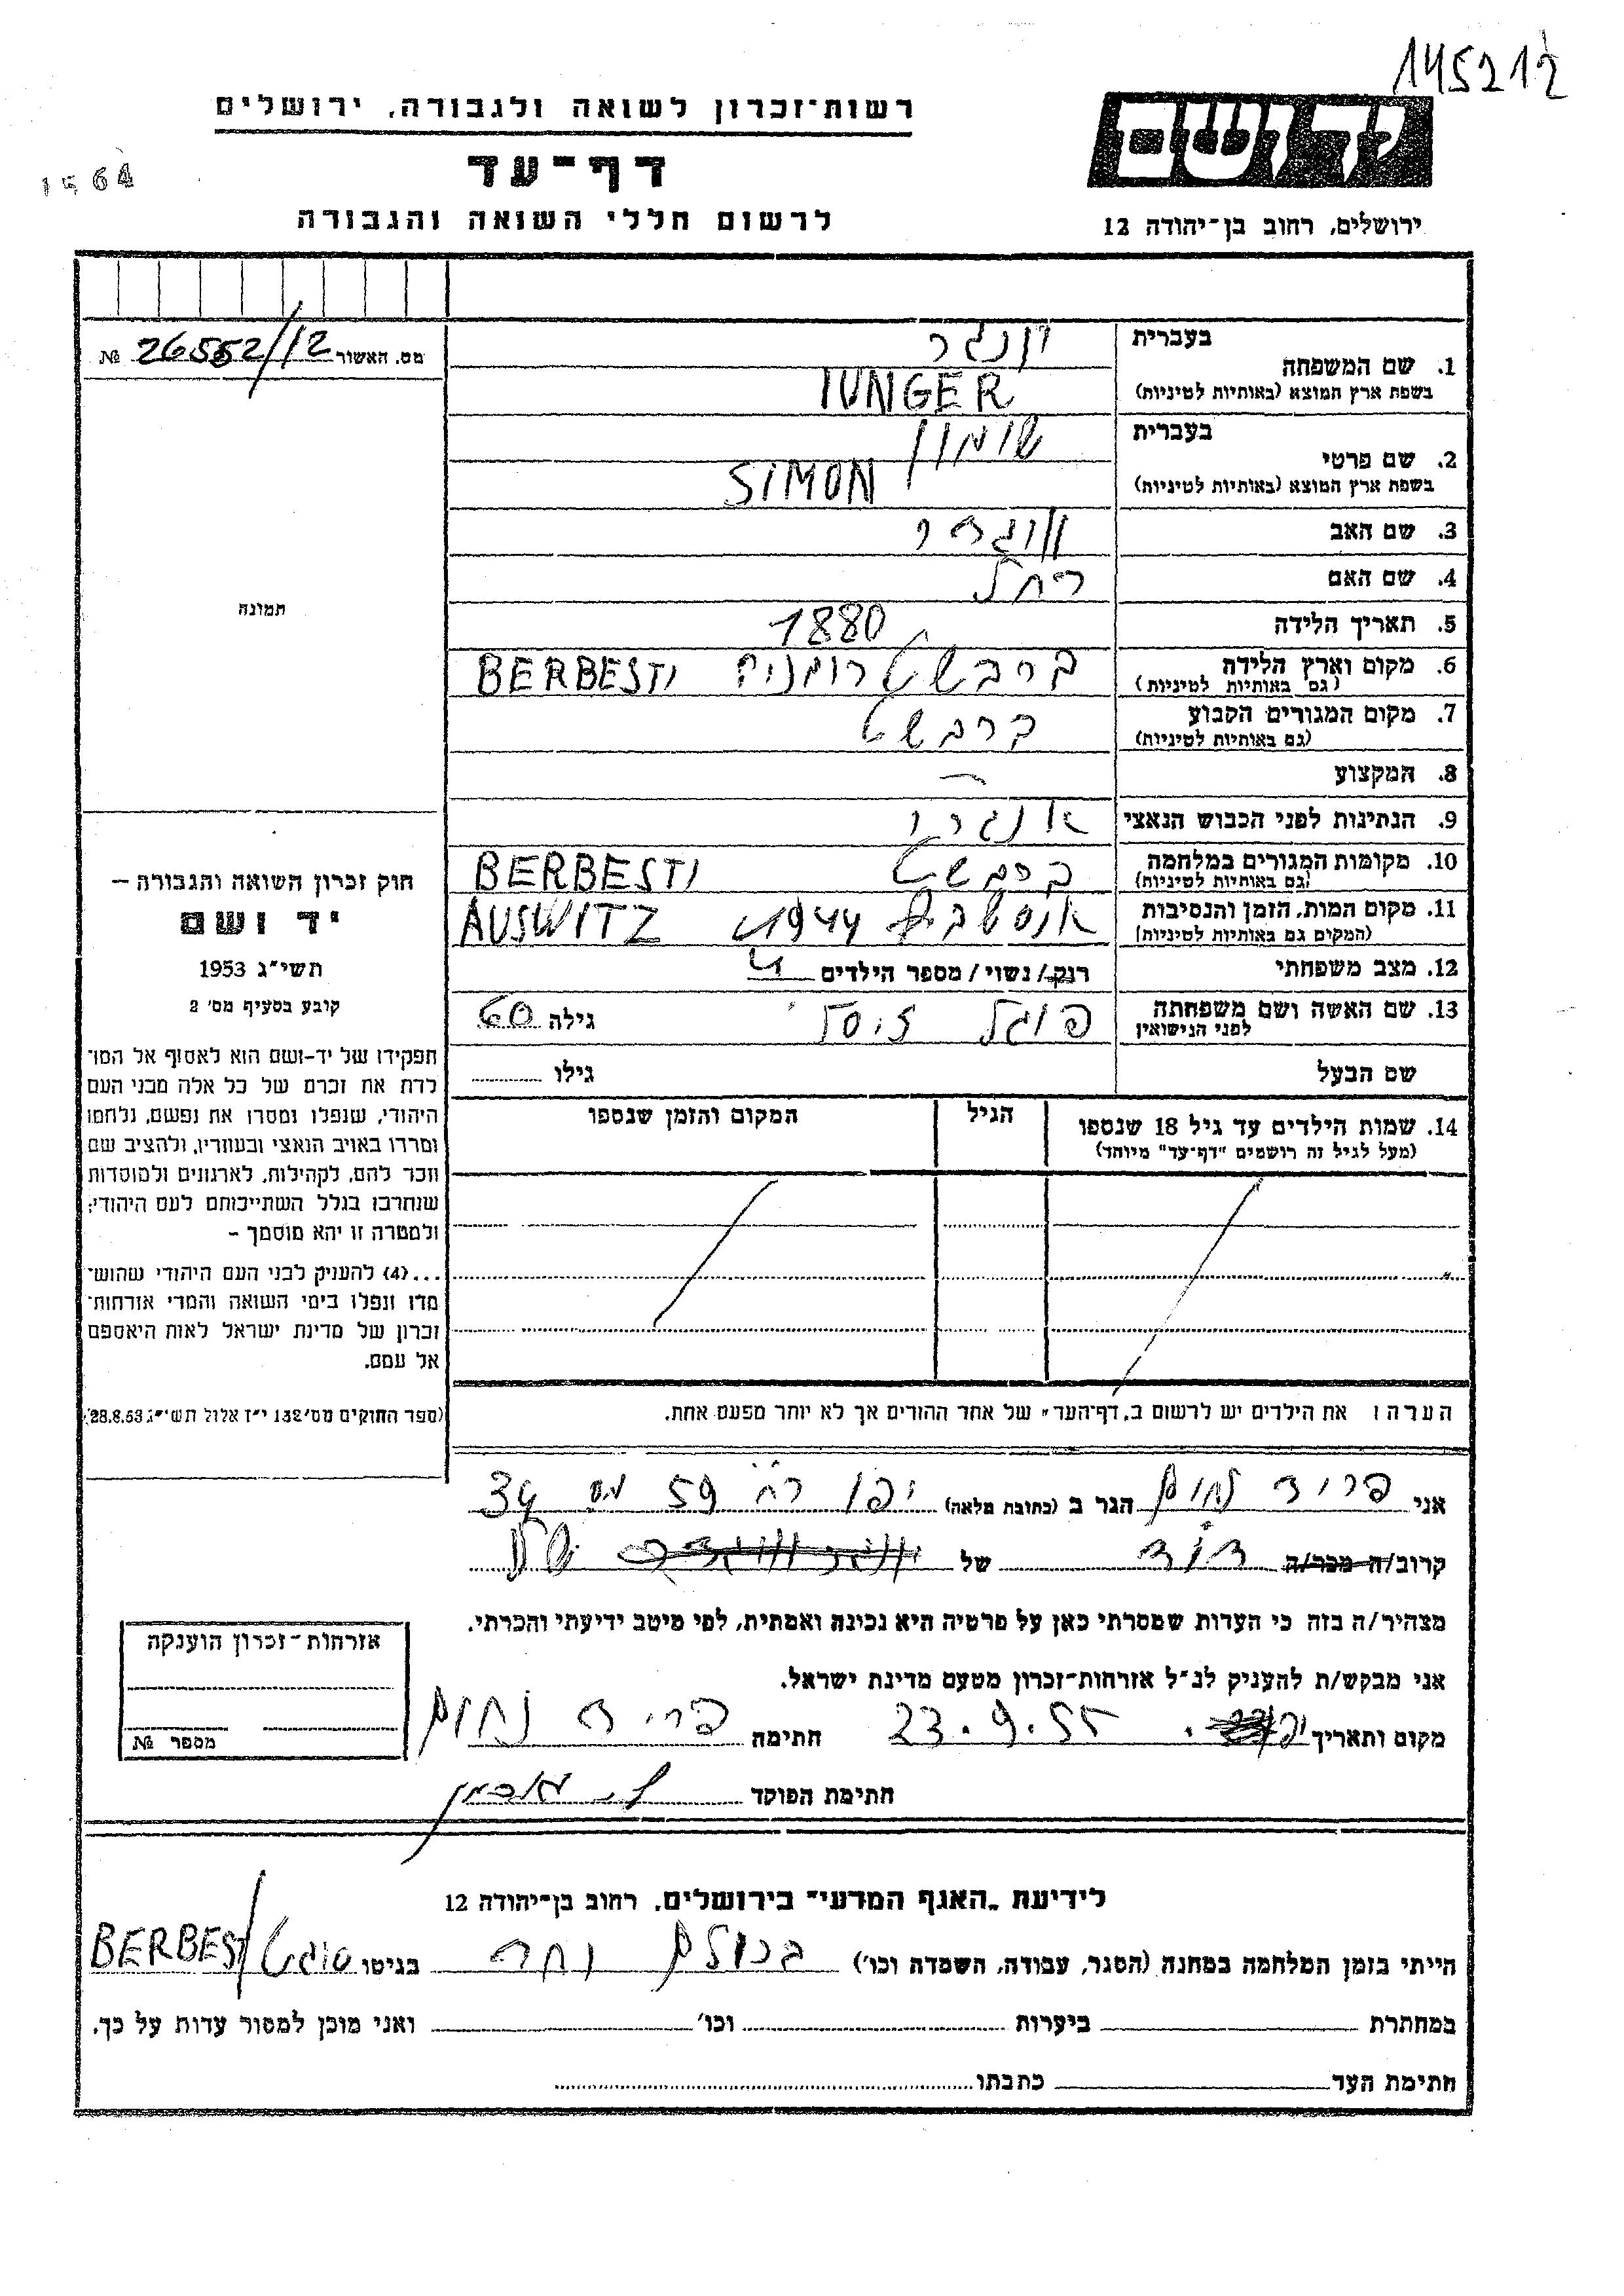 145212
רשות־זכרון לשואה ולגבורה, ירושלים
דף־עד
1564
לרשום חללי השואה והגבורה
ירושלים, רחוב בן־יהודה 12
מס. האשור 26552/12 №
תמונה
בעברית יונגר
1. שם המשפחה
בשפת ארץ המוצא (באותיות לטיניות) IUNGER
בעברית שימון
2. שם פרטי
בשפת ארץ המוצא (באותיות לטיניות) SIMON
3. שם האב
4. שם האם רחל
5. תאריך הלידה 1880
6. מקום וארץ הלידה ברבשט רומניה BERBESTI
(גם באותיות לטיניות)
7. מקום המגורים הקבוע ברבשט
(גם באותיות לטיניות)
8. המקצוע —
9. הנתינות לפני הכבוש הנאצי
10. מקומות המגורים במלחמה ברבשט BERBESTI
(גם באותיות לטיניות)
11. מקום המות, הזמן והנסיבות 1944 AUSWITZ
(המקום גם באותיות לטיניות)
12. מצב משפחתי רוק/ נשוי/ מספר הילדים 4
13. שם האשה ושם משפחתה פוגל גילה 60
לפני הנישואין
שם הבעל גילו
14. שמות הילדים עד גיל 18 שנספו הגיל המקום והזמן שנספו
(מעל לגיל זה רושמים "דף־עד" מיוחד)
הערה: את הילדים יש לרשום ב„דף־העד" של אחד ההורים אך לא יותר מפעם אחת.
חוק זכרון השואה והגבורה –
יד ושם
תשי"ג 1953
קובע בסעיף מס' 2
תפקידו של יד-ושם הוא לאסוף אל המו־
לדת את זכרם של כל אלה מבני העם
היהודי, שנפלו ומסרו את נפשם, נלחמו
ומרדו באויב הנאצי ובעוזריו, ולהציב שם
וזכר להם, לקהילות, לארגונים ולמוסדות
שנחרבו בגלל השתייכותם לעם היהודי;
ולמטרה זו יהא מוסמך –
...(4) להעניק לבני העם היהודי שהוש־
מדו ונפלו בימי השואה והמרי אזרחות־
זכרון של מדינת ישראל לאות היאספם
אל עמם.
(ספר החוקים מס' 132 י"ז אלול תשי"ג 28.8.53)
אני פריד נחום הגר ב (כתובת מלאה) יפו רח' 59 מס 34
קרוב/ה מכר/ה דוד של
מצהיר/ה בזה כי העדות שמסרתי כאן על פרטיה היא נכונה ואמתית, לפי מיטב ידיעתי והכרתי.
אני מבקש/ת להעניק לנ"ל אזרחות־זכרון מטעם מדינת ישראל.
מקום ותאריך 23.9.55 חתימה פריד נחום
חתימת הפוקד
אזרחות־זכרון הוענקה
מספר №
לידיעת „האגף המדעי" בירושלים, רחוב בן־יהודה 12
הייתי בזמן המלחמה במחנה (הסגר, עבודה, השמדה וכו') בגיטו BERBEST
במחתרת ביערות וכו' ואני מוכן למסור עדות על כך.
חתימת העד כתבתו